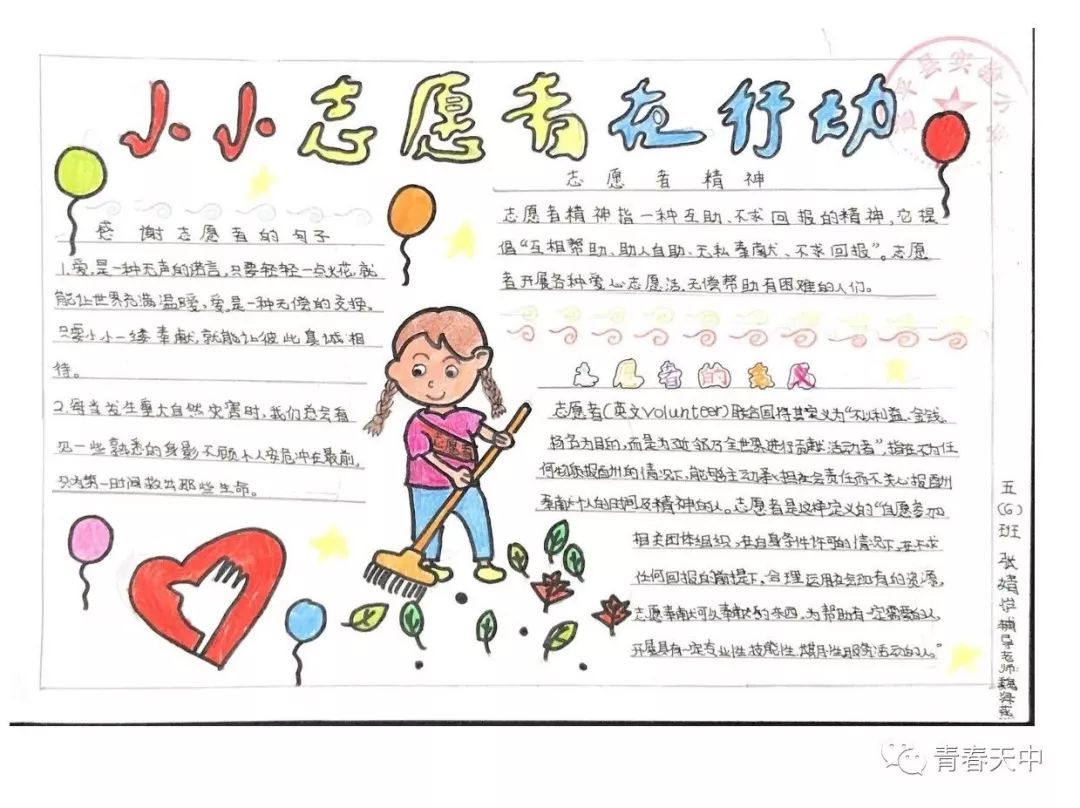 小小志愿者在行动
感谢志愿者的句子
1.爱,是一种无声的诺言,只要轻轻一点火花,就
能让世界充满温暖,爱是一种无偿的交换,
只要小小一缕奉献,就能让彼此真诚相
待。
2.每当发生重大自然灾害时,我们总会看
见一些熟悉的身影不顾个人安危冲在最前,
只为第一时间救助那些生命。
志愿者精神
志愿者精神指一种互助、不求回报的精神,它提
倡“互相帮助、助人自助、无私奉献、不求回报”。志愿
者开展各种爱心志愿活,无偿帮助有困难的人们。
志愿者的意义
志愿者(英文volunteer)联合国将其定义为“不以利益、金钱、
扬名为目的,而是为近邻乃至世界进行贡献活动者”指在不为任
何物质报酬的情况下,能够主动承担社会责任而不关心报酬
奉献个人的时间及精神的人。志愿者是这样定义的“自愿参加
相关团体组织,在自身条件许可的情况下,在不求
任何回报的前提下,合理运用社会现有的资源,
志愿奉献可以奉献的东西,为帮助有一定需要的人,
开展具有一定专业性、技能性、长期性服务活动的人。”
志愿者
五(6)班 张婧 辅导老师魏
县实验小
青春天中